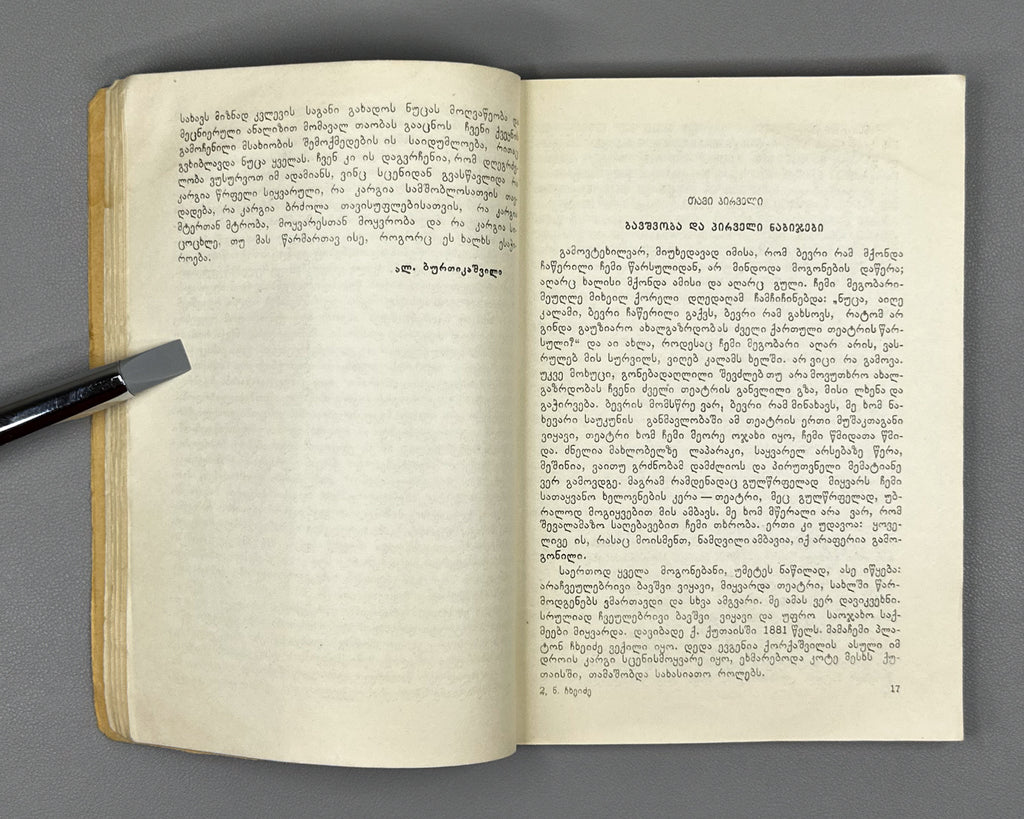 სახავს მიზნად კვლევის საგანი გახადოს ნუცას მოღვაწეობა და
მეცნიერული ანალიზით მომავალ თაობას გააცნოს ჩვენი ქვეყნის
გამოჩენილი მსახიობის შემოქმედების ის საიდუმლოება, რითაც
გვხიბლავდა ნუცა ყველას. ჩვენ კი ის დაგვრჩენია, რომ დღეგრძე-
ლობა ვუსურვოთ იმ ადამიანს, ვინც სცენიდან გვასწავლიდა რა
კარგია წრფელი სიყვარული, რა კარგია სამშობლოსათვის თავ-
დადება, რა კარგია ბრძოლა თავისუფლებისათვის, რა კარგია
მტერთან მტრობა, მოყვარესთან მოყვრობა და რა კარგია სი-
ცოცხლე, თუ მას წარმართავ ისე, როგორც ეს ხალხს ესაჭი-
როება.
ალ. ბურთიკაშვილი
თავი პირველი
ბავშვობა და პირველი ნაბიჯები
გამოვტეხილვარ, მიუხედავად იმისა, რომ ბევრი რამ მქონდა
ჩაწერილი ჩემი წარსულიდან, არ მინდოდა მოგონების დაწერა;
აღარც ხალისი მქონდა ამისი და აღარც გული. ჩემი მეგობარი-
მეუღლე მიხეილ ქორელი დღედაღამ ჩამჩიჩინებდა: „ნუცა, აიღე
კალამი, ბევრი ჩაწერილი გაქვს, ბევრი რამ გახსოვს, რატომ არ
გინდა გაუზიარო ახალგაზრდობას ძველი ქართული თეატრის წარ-
სული?“ და აი ახლა, როდესაც ჩემი მეგობარი აღარ არის, ვას-
რულებ მის სურვილს, ვიღებ კალამს ხელში. არ ვიცი რა გამოვა.
უკვე მოხუცი, გონებადაღლილი შევძლებ თუ არა მოვუთხრო ახალ-
გაზრდობას ჩვენი ძველი თეატრის განვლილი გზა, მისი ლხენა და
გაჭირვება. ბევრის მომსწრე ვარ, ბევრი რამ მინახავს, მე ხომ ნა-
ხევარი საუკუნის განმავლობაში ამ თეატრის ერთი მუშაკთაგანი
ვიყავი, თეატრი ხომ ჩემი მეორე ოჯახი იყო, ჩემი წმიდათა წმი-
და. ძნელია მახლობელზე ლაპარაკი, საყვარელ არსებაზე წერა,
მეშინია, ვაითუ გრძნობამ დამძლიოს და პირუთვნელი მემატიანე
ვერ გამოვდგე. მაგრამ რამდენადაც გულწრფელად მიყვარს ჩემი
სათაყვანო ხელოვნების კერა — თეატრი, მეც გულწრფელად, უბ-
რალოდ მოგიყვებით მის ამბავს. მე ხომ მწერალი არა ვარ, რომ
შევალამაზო საღებავებით ჩემი თხრობა. ერთი კი უდავოა: ყოვე-
ლივე ის, რასაც მოისმენთ, ნამდვილი ამბავია, იქ არაფერია გამო-
გონილი.
საერთოდ ყველა მოგონებანი, უმეტეს ნაწილად, ასე იწყება:
არაჩვეულებრივი ბავშვი ვიყავი, მიყვარდა თეატრი, სახლში წარ-
მოდგენებს ვმართავდი და სხვა ამგვარი. მე ამას ვერ დავიკვეხნი.
სრულიად ჩვეულებრივი ბავშვი ვიყავი და უფრო საოჯახო საქ-
მეები მიყვარდა. დავიბადე ქ. ქუთაისში 1881 წელს. მამაჩემი პლა-
ტონ ჩხეიძე ვექილი იყო. დედა ევგენია ქორქაშვილის ასული იმ
დროის კარგი სცენისმოყვარე იყო, ეხმარებოდა კოტე მესხს ქუ-
თაისში, თამაშობდა სახასიათო როლებს.
2. ნ. ჩხეიძე
17